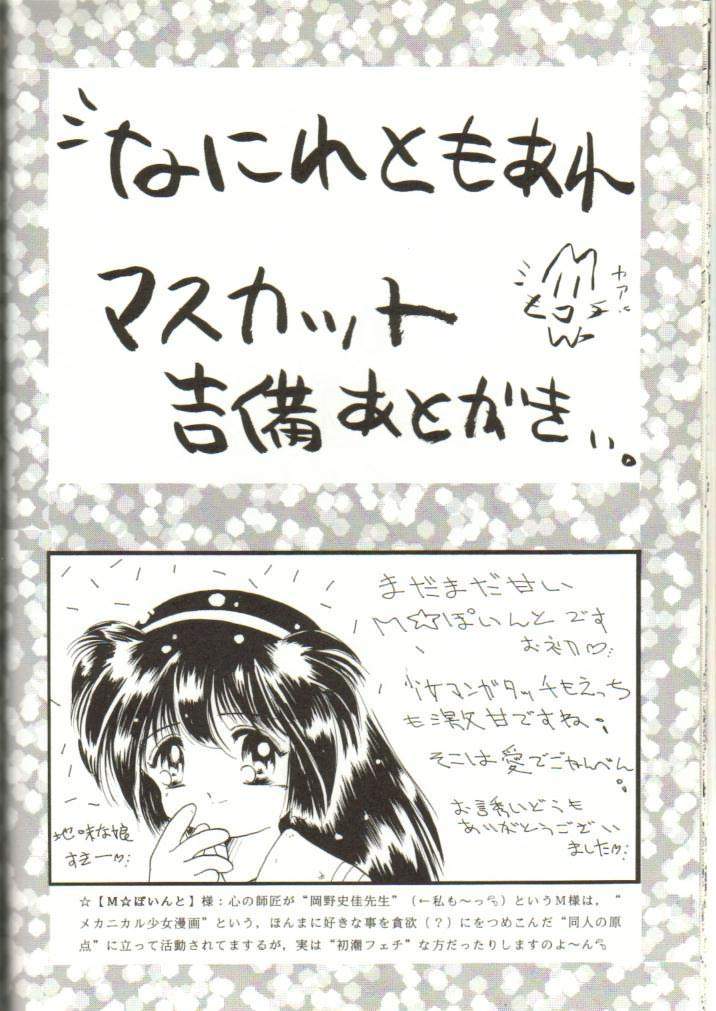 なにわともあれ
マスカット
吉備あとがき。
ヤアル
まだまだ甘い
M☆ぽいんとです
お初♡
少女マンガタッチもえっち
も激甘ですね。
そこは愛でごかんべん。
お誘いどうも
ありがとうござい
ました♡
地味な娘
すきー♡
☆【M☆ぽいんと】様：心の師匠が“岡野史佳先生”（←私も～っ）というM様は，“
メカニカル少女漫画”という，ほんまに好きな事を貪欲（？）にをつめこんだ“同人の原
点”に立って活動されてまするが，実は“初潮フェチ”な方だったりしますのよ～ん